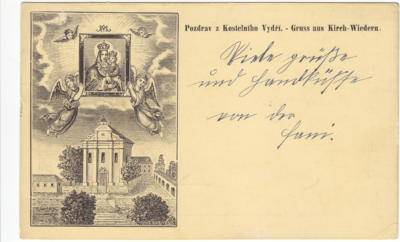 Pozdrav z Kostelního Vydří. - Gruss aus Kirch-Wiedern.
Viele grüße
und Handküsse
von der
Fani.